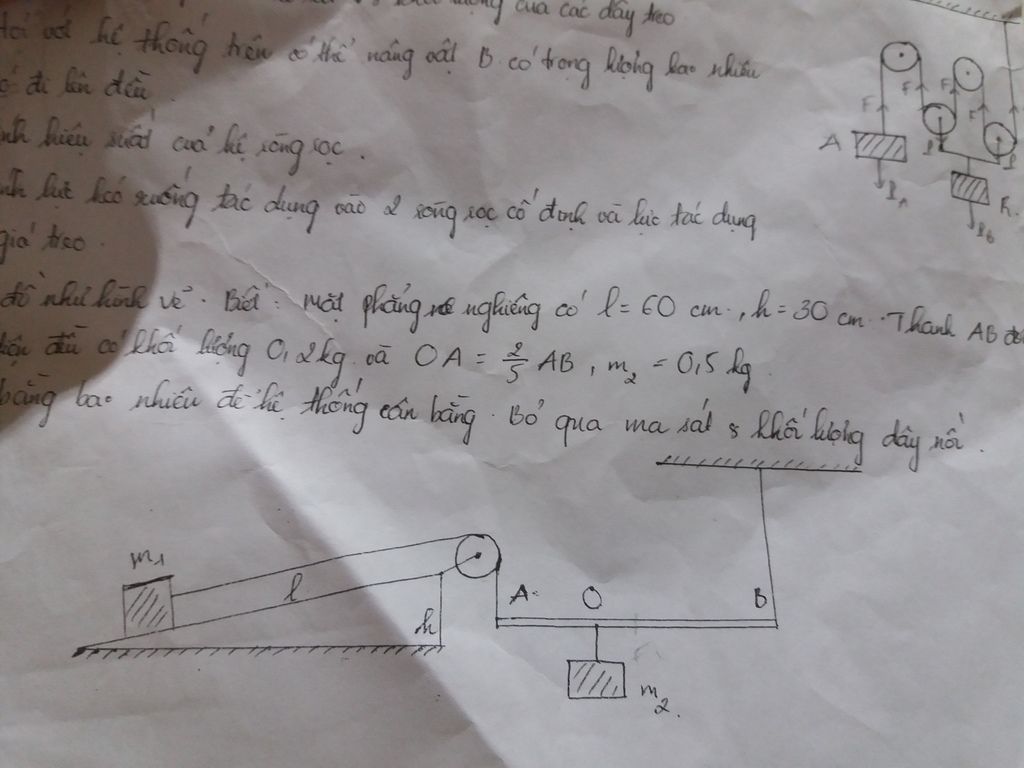 của các dây treo
hệ thống trên có thể nâng vật B có trọng lượng bao nhiêu
đi lên đều.
hiệu suất của hệ ròng rọc.
lực kéo xuống tác dụng vào 2 ròng rọc cố định và lực tác dụng
giá treo.
đồ như hình vẽ. Biết: mặt phẳng nghiêng có l = 60 cm, h = 30 cm. Thanh AB
có khối lượng 0,2kg và OA = 2/5 AB, m2 = 0,5 kg.
bằng bao nhiêu để hệ thống cân bằng. Bỏ qua ma sát & khối lượng dây nối.
F F F F
A
P_A
P_B
m1
l
h
A
O
B
m2.